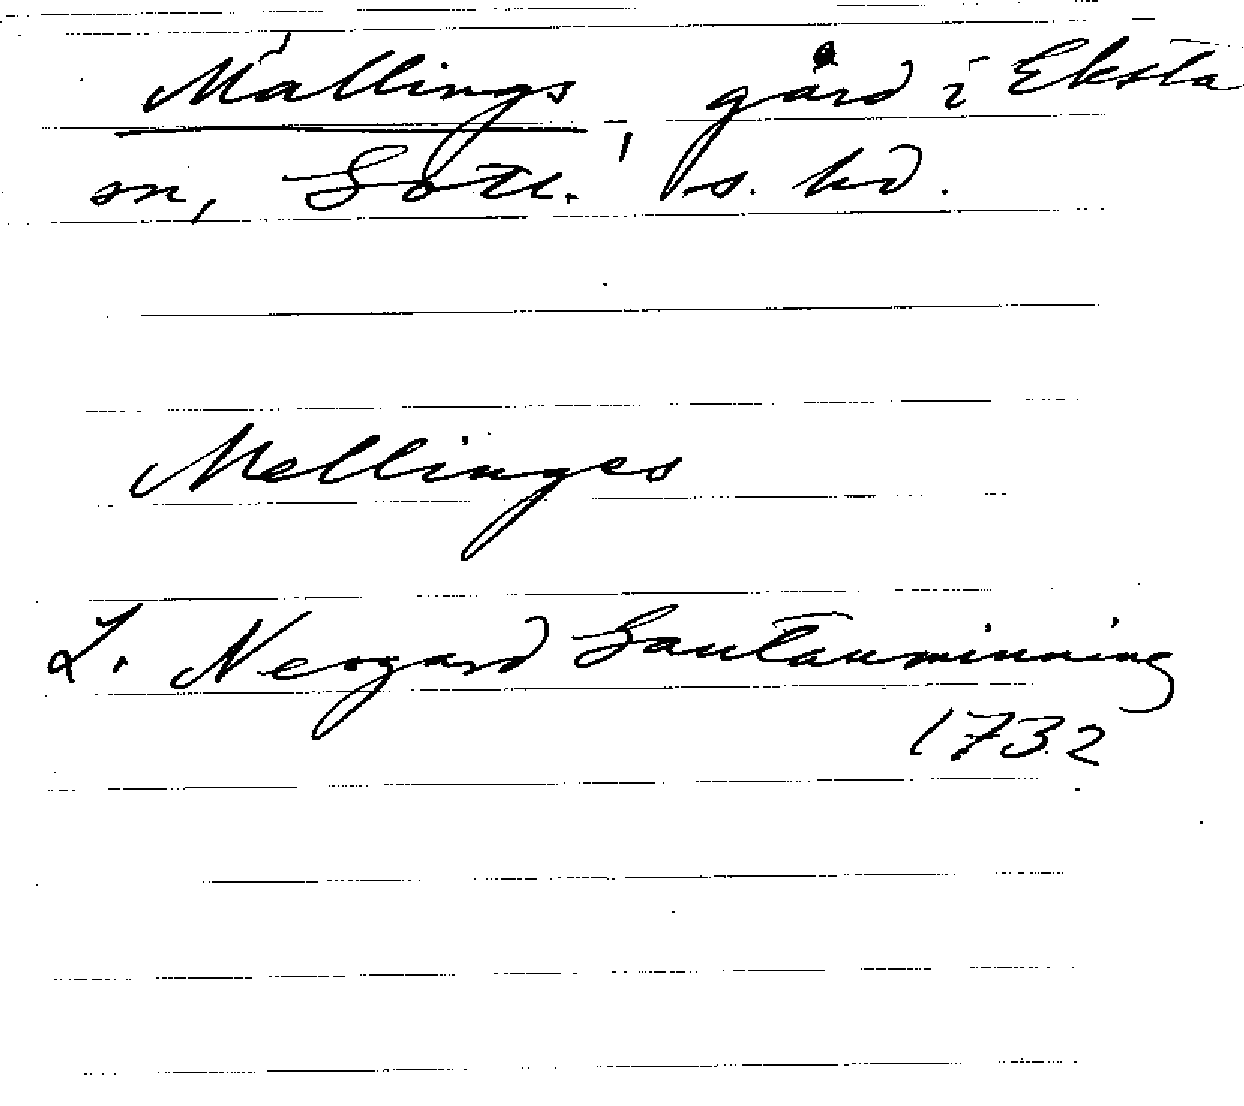 Mallings, gård i Eksta
sn, Gotl. s. hd.
Mellinges
L. Neogard Gautauminning
1732